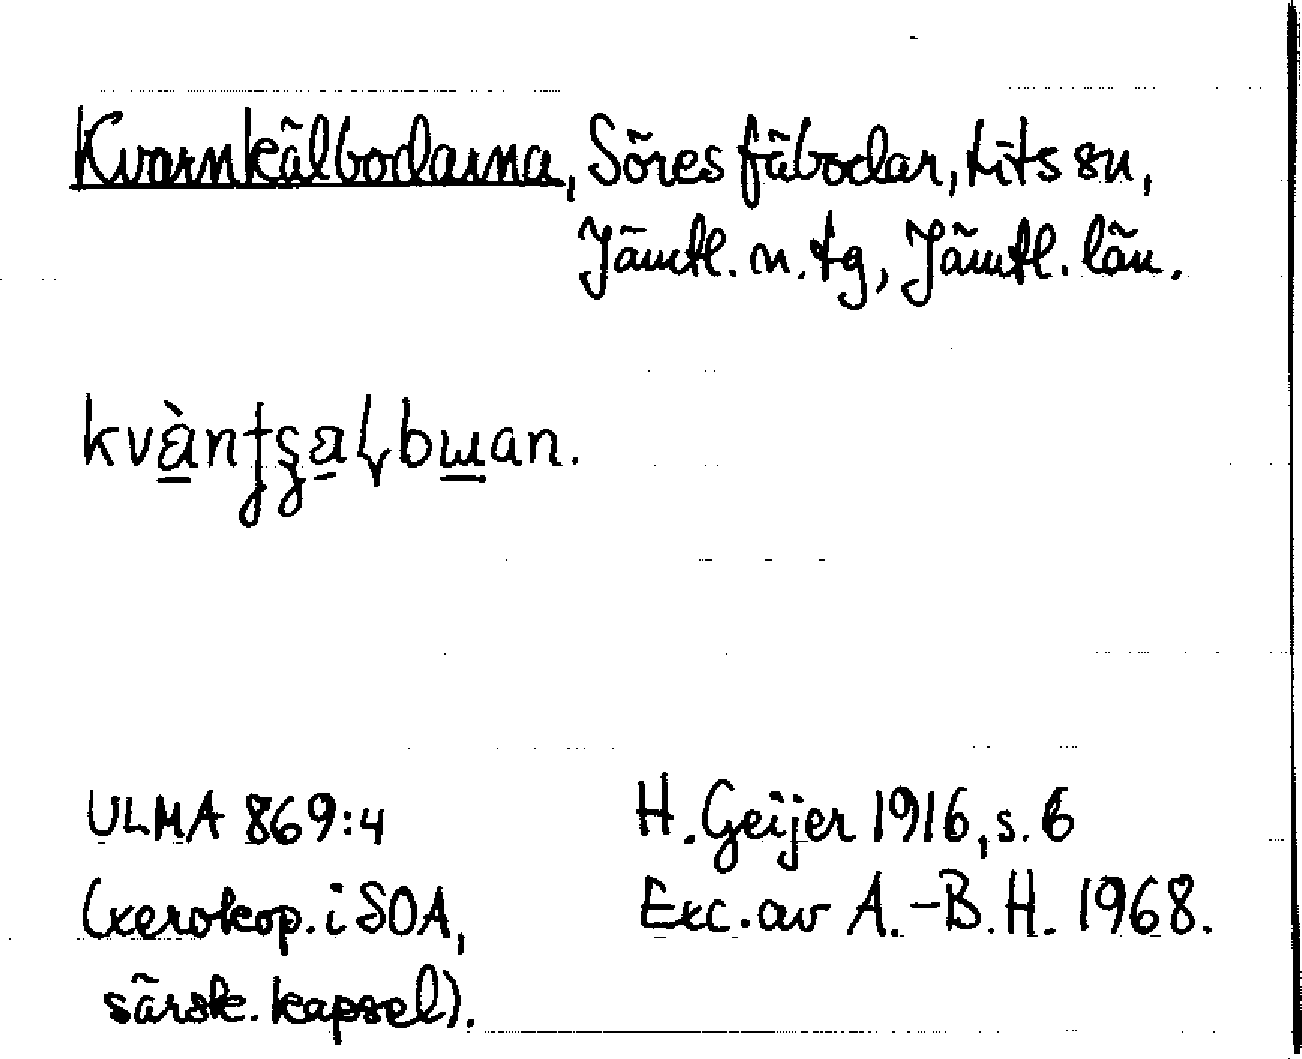 Kvarnkälbodarna, Söres fäbodar, Lits sn,
Jämtl. n. tg, Jämtl. län.
ULMA 869:4
H. Geijer 1916, s. 6
(xerokop. i SOA,
Exc. av A.-B. H. 1968.
särsk. kapsel).